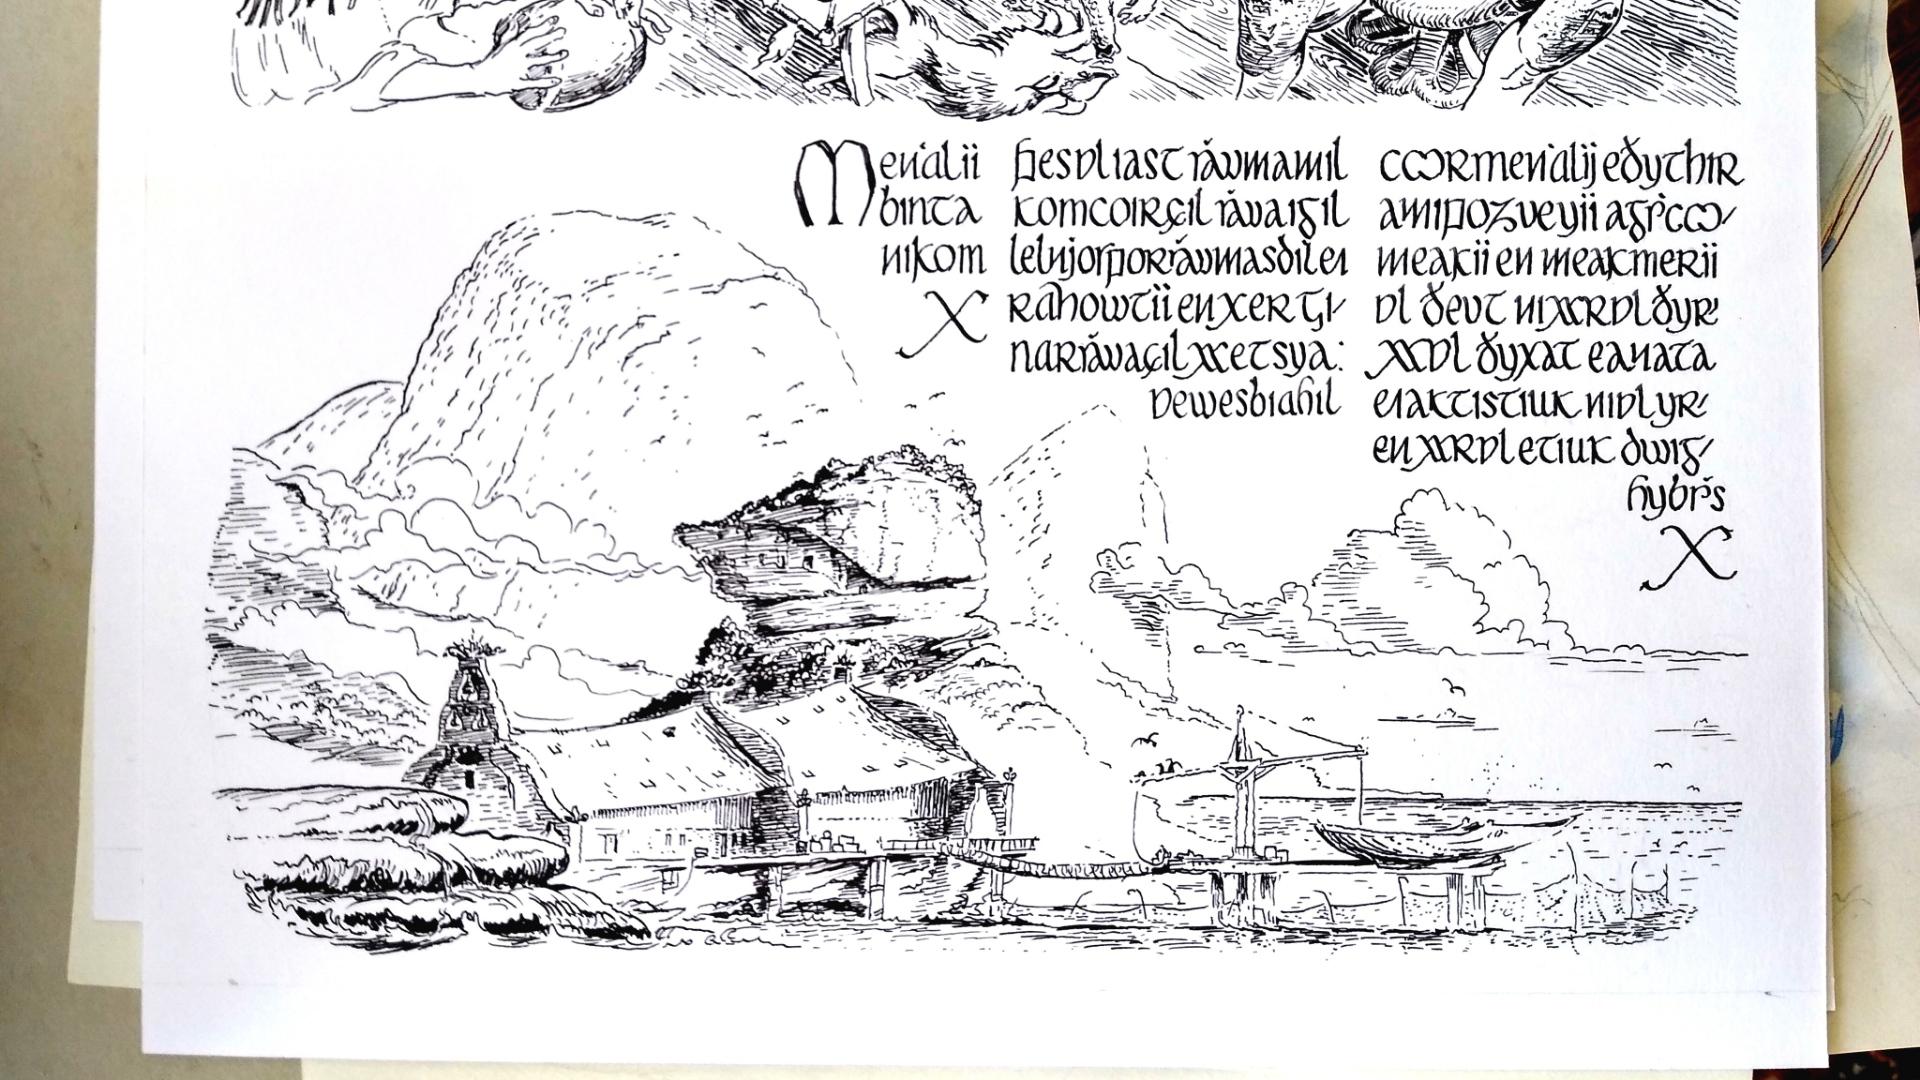 Menꞌalii
binta
nikom
X
hesvliast rǎvmamıl
komcoırçıl rǎvaıgıl
lelnjorporrǎvmasdıleı
rahowtii en xer tı-
narrǎvaçıl xetsya:
vewesbıahıl
cwormenꞌalij eðythır
amıpozveyii agřcco-
meakii en meakmerii
vl ðevt nıxrvl ðyr-
xvl ðyxat eanata
eıaktıstıuk nıvlyr-
en xrvl etıuk ðwıg-
hybřs
X